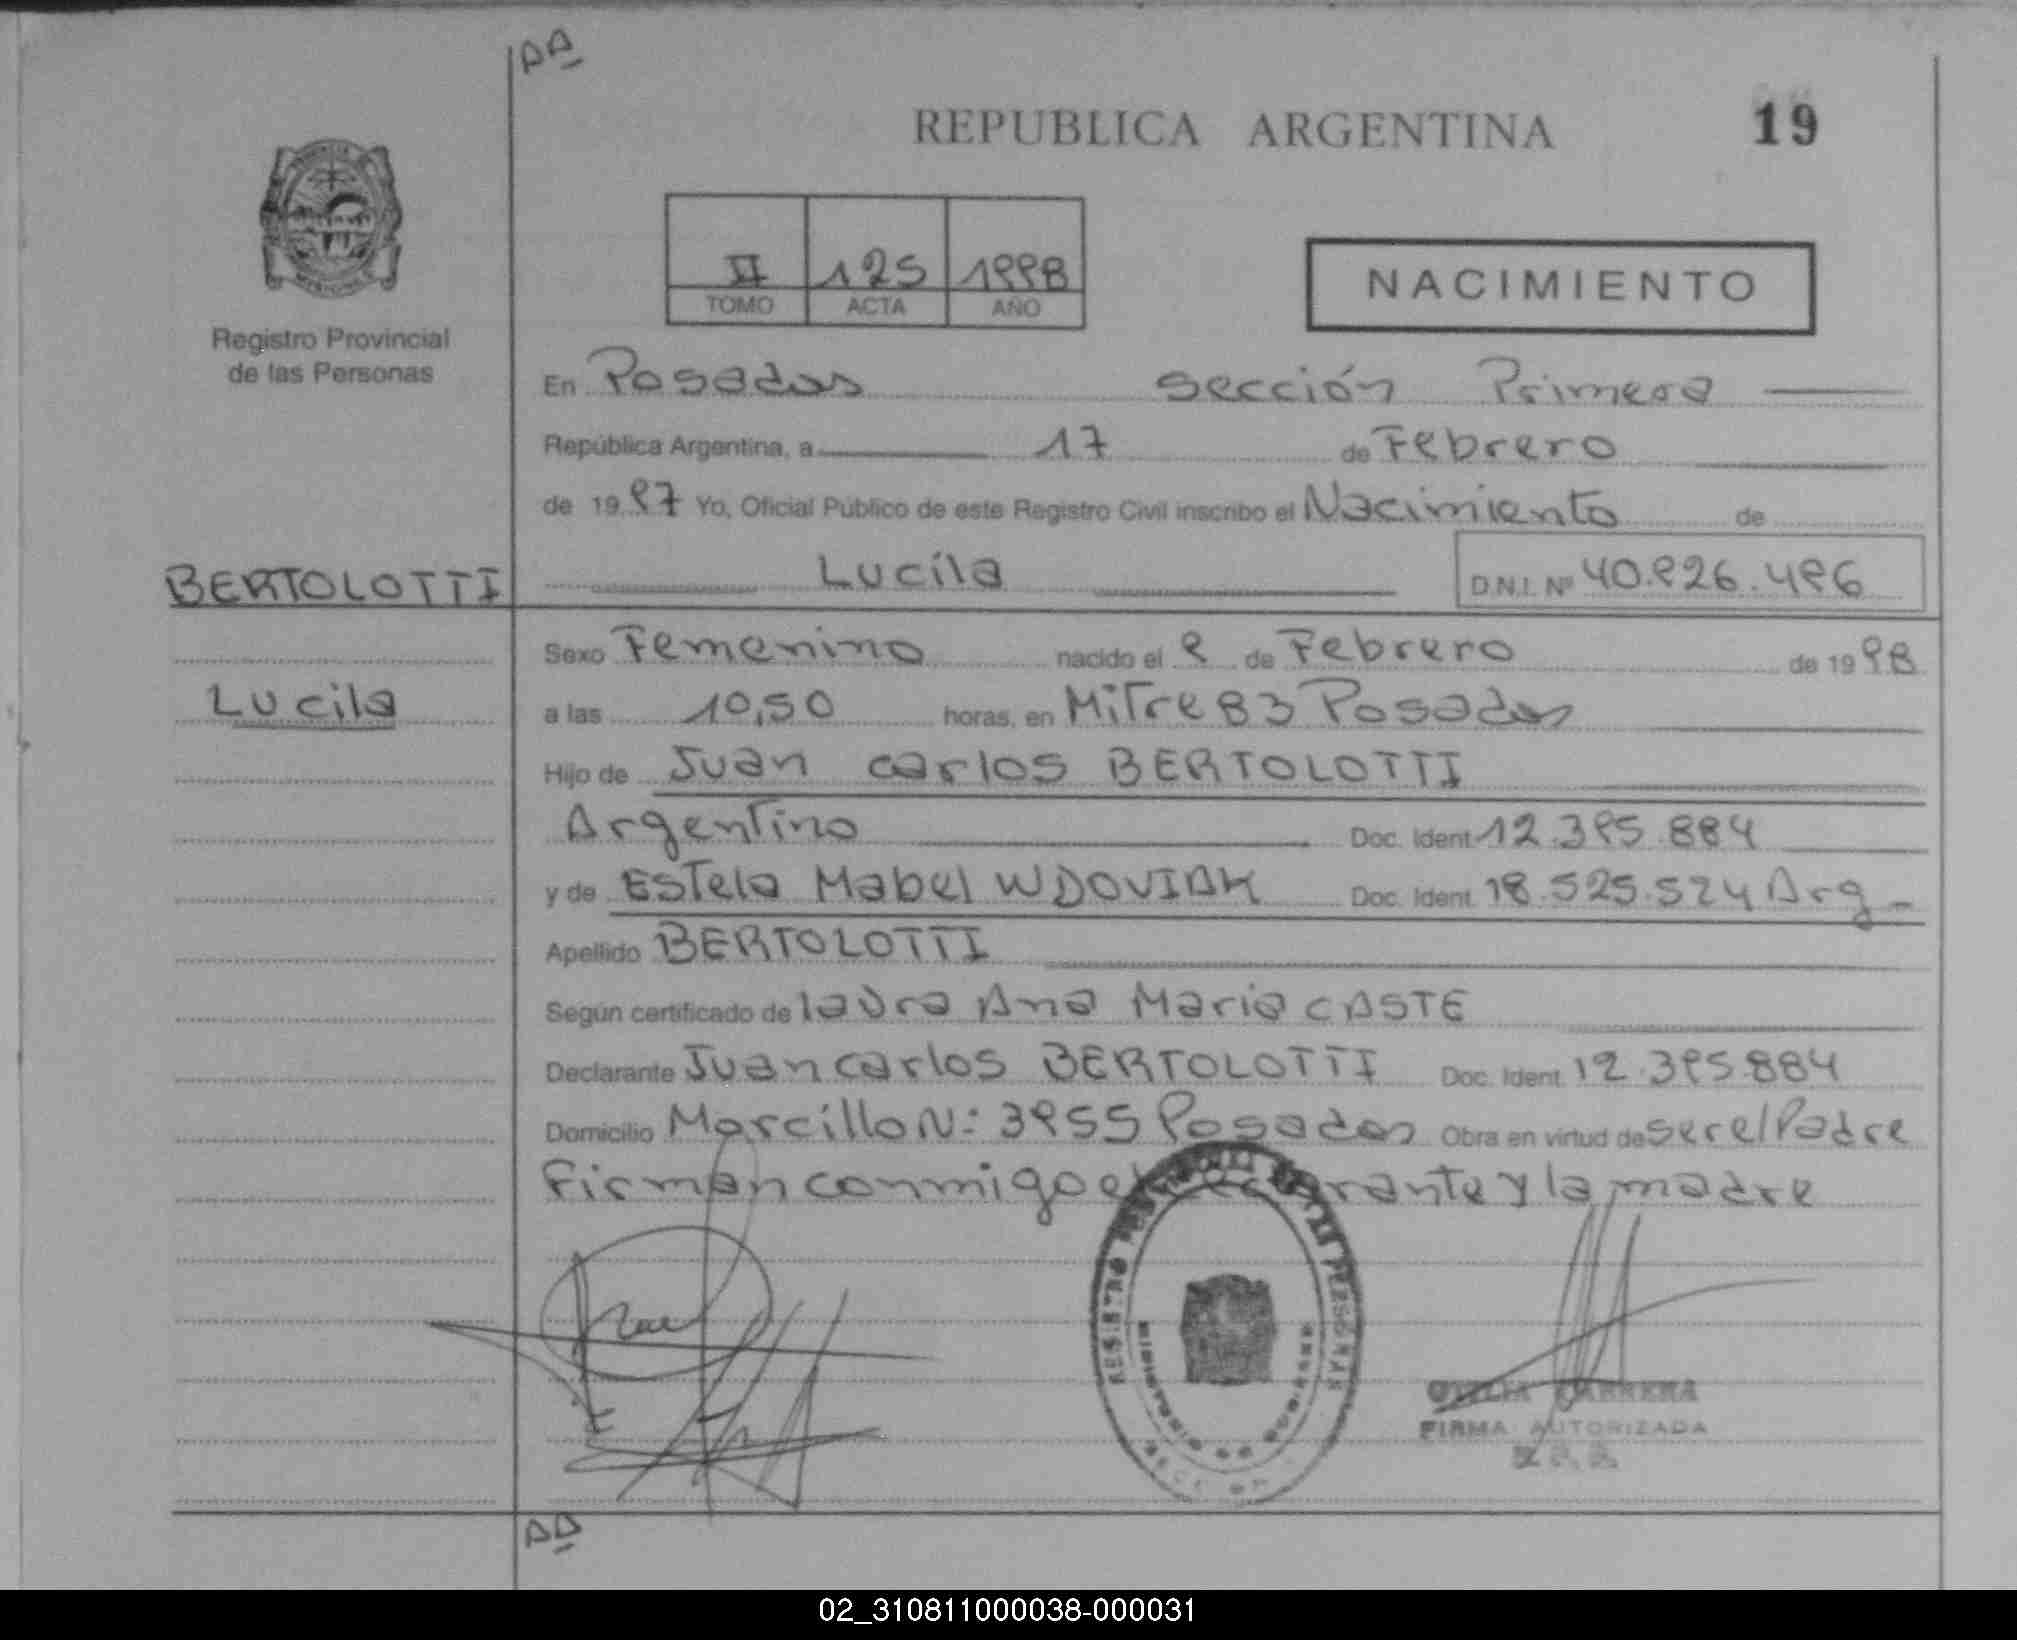 AA
REPUBLICA ARGENTINA
19
II 125 1998
TOMO ACTA AÑO
NACIMIENTO
Registro Provincial
de las Personas
En Posadas sección Primera
República Argentina, a 17 de Febrero
de 19 97 Yo, Oficial Público de este Registro Civil inscribo el Nacimiento de
BERTOLOTTI
Lucila
D.N.I. Nº 40.926.496
Sexo Femenino nacido el 9 de Febrero de 19 98
Lucila
a las 10,50 horas, en Mitre 83 Posadas
Hijo de Juan carlos BERTOLOTTI
Argentino Doc. Ident 12.395.884
y de Estela Mabel WDOVIAK Doc. Ident. 18.525.524 Arg
Apellido BERTOLOTTI
Según certificado de laura Ana Maria CASTE
Declarante Juan carlos BERTOLOTTI Doc. Ident. 12.395.884
Domicilio Morcillo N: 3955 Posadas Obra en virtud de ser el Padre
Firman conmigo y la madre
REGISTRO PERSONAS
MINISTERIO DE GOBIERNO
CABRERA
FIRMA AUTORIZADA
AA
02_310811000038-000031